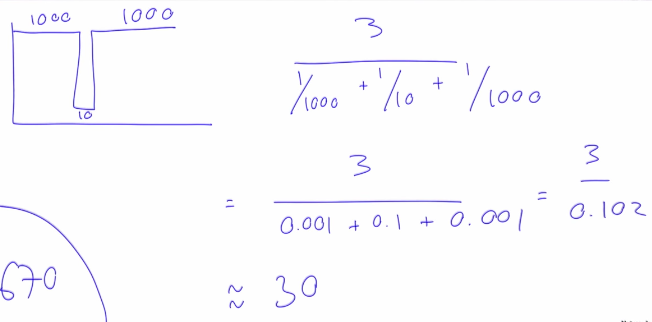 1000 1000
10
3
1/1000 + 1/10 + 1/1000
3
= 0.001 + 0.1 + 0.001 = 3
0.102
670
≈ 30